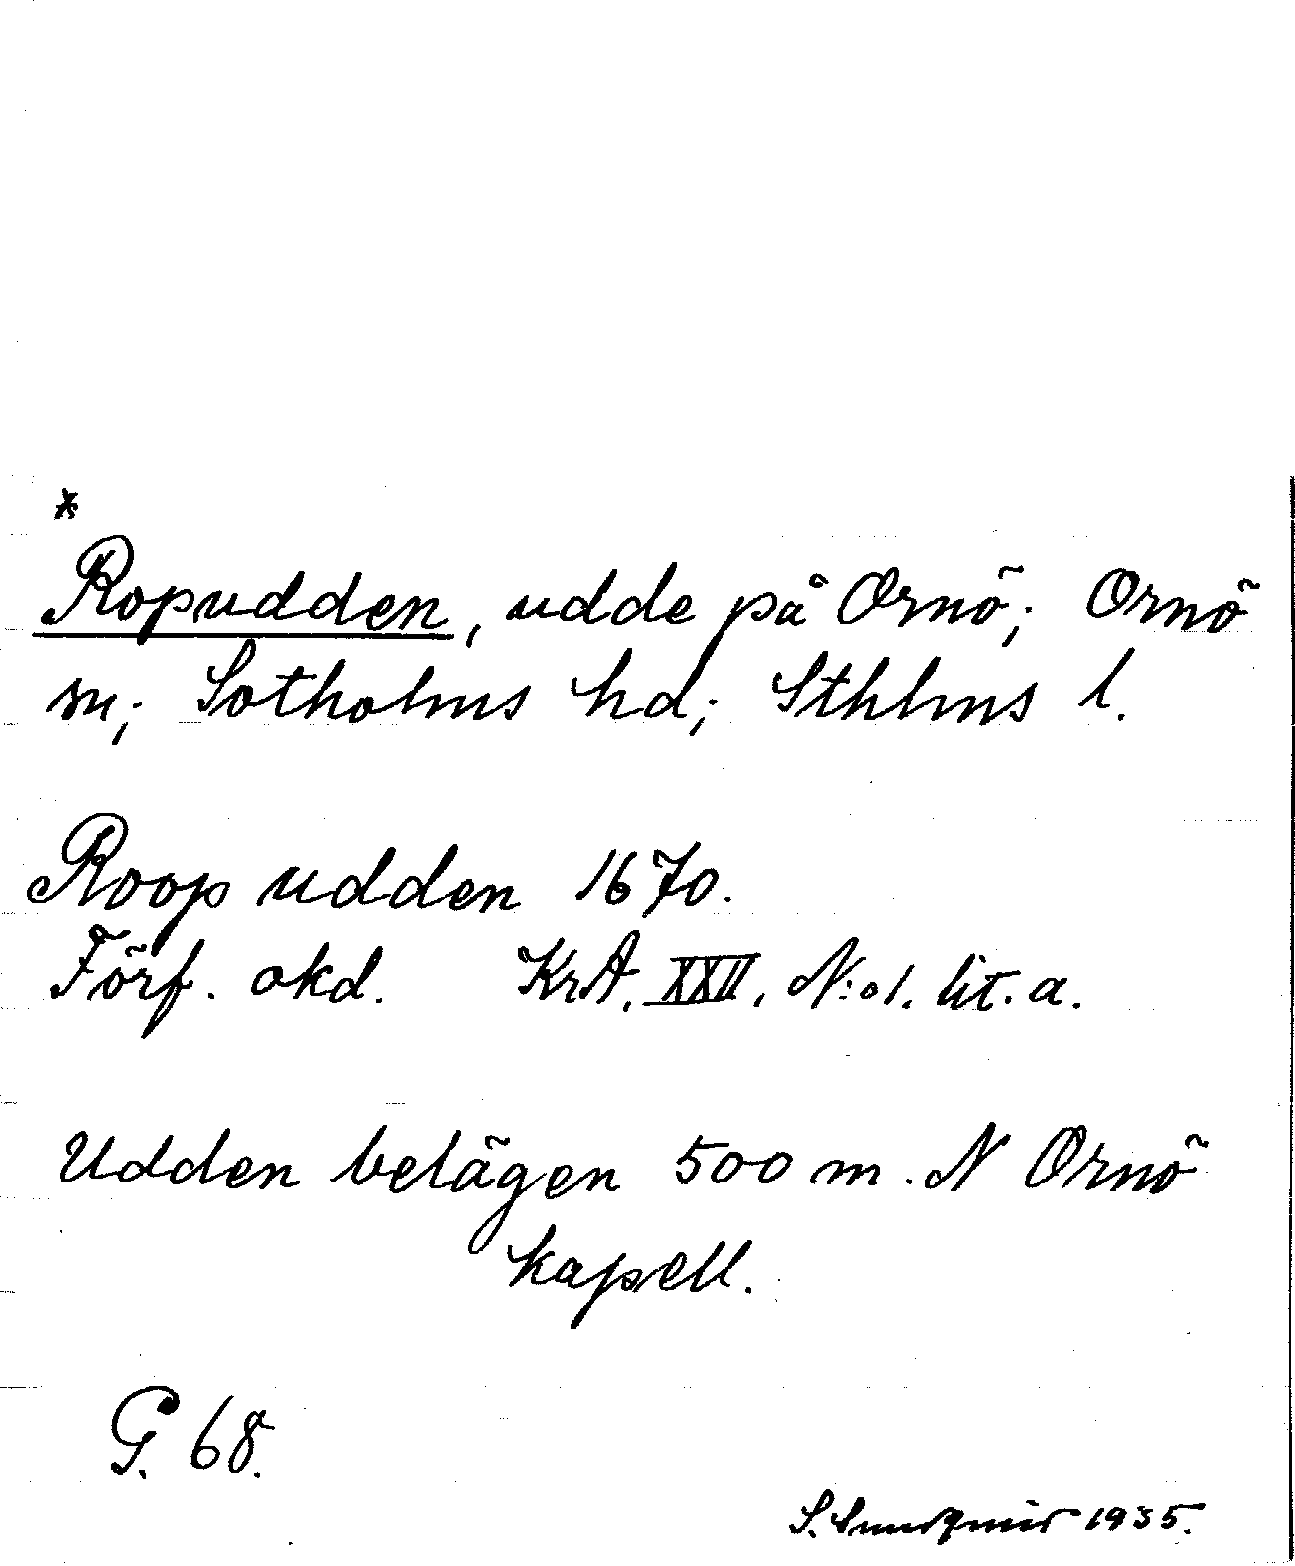 *
Ropudden, udde på Ornö; Ornö
sn; Sotholms hd; Sthlms l.
Roop udden 1670.
Förf. okd. KrA. XXII, N:o 1. lit. a.
Udden belägen 500 m. N Ornö
kapell.
G. 68.
S. 1935.